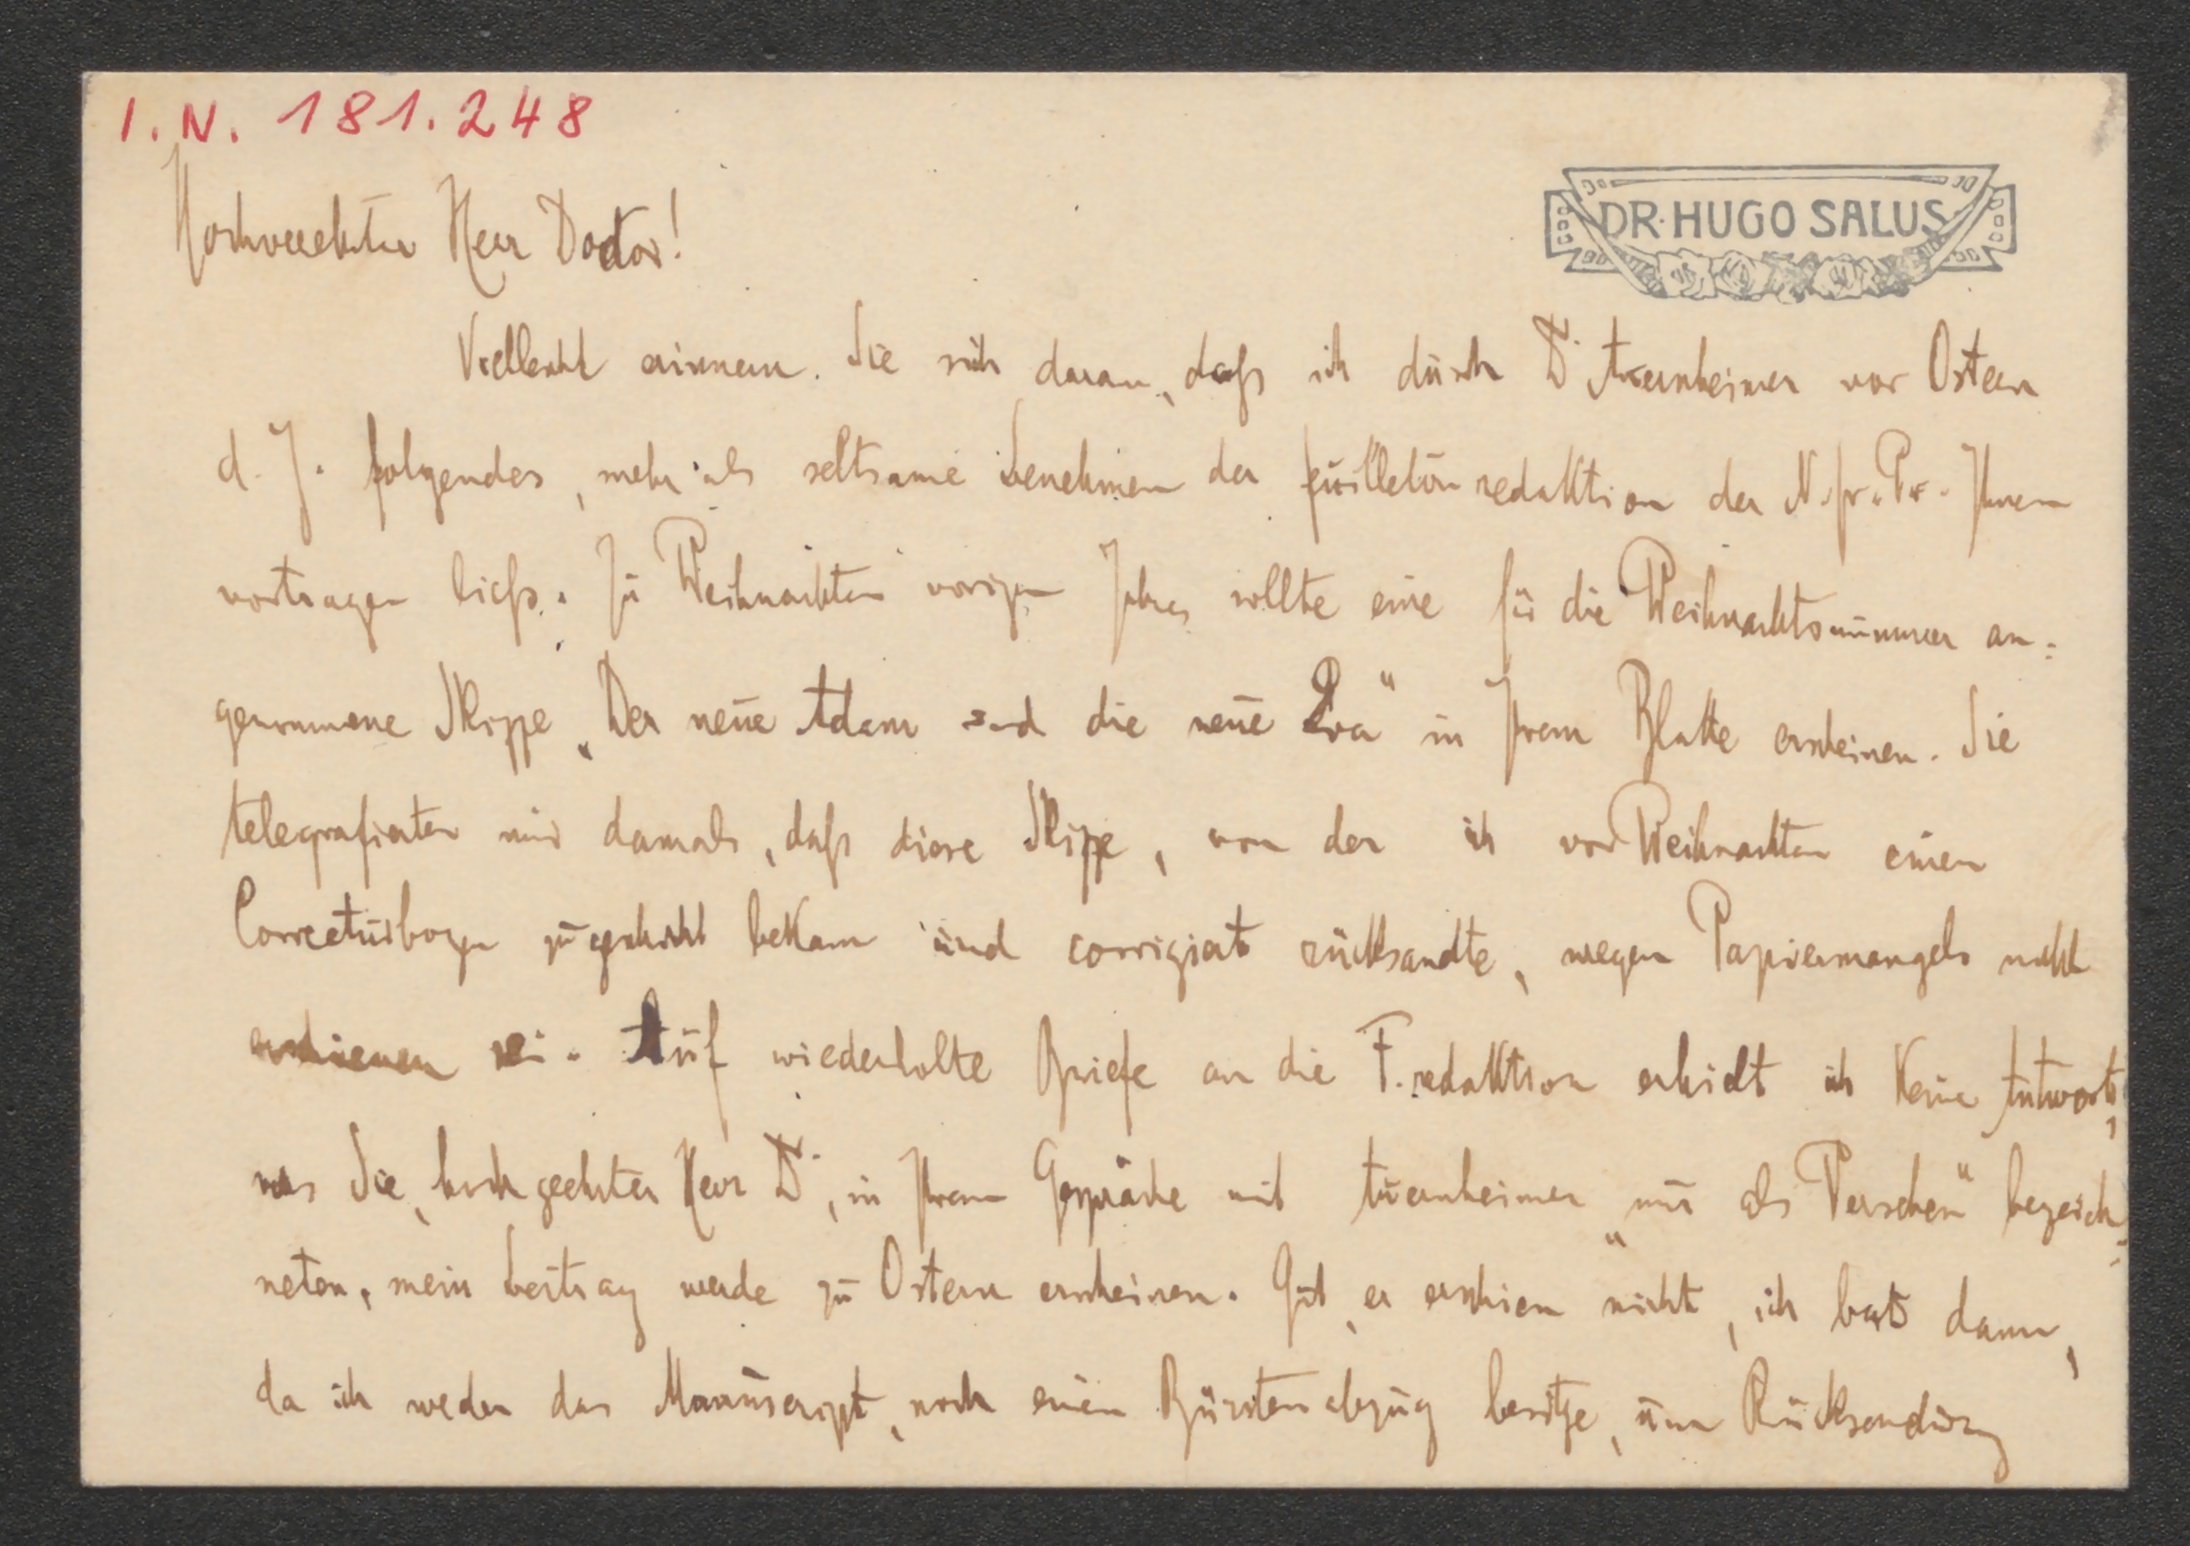 I. N. 181.248
DR. HUGO SALUS
Hochverehrter Herr Doctor!
Vielleicht erinnern Sie sich daran, daß ich durch Dr. Auernheimer vor Ostern
d. J. folgendes, mehr als seltsame Benehmen der Feuilletonredaktion der N. fr. Pr. Ihnen
vortragen ließ. Zu Weihnachten vorigen Jahres sollte eine für die Weihnachtsnummer an=
genommene Skizze „Der neue Adam und die neue Eva" in Ihrem Blatte erscheinen. Sie
telegrafierten mir damals, daß diese Skizze, von der ich vor Weihnachten einen
Correcturbogen zugeschickt bekam und corrigiert rücksandte, wegen Papiermangels nicht
erschienen sei. Auf wiederholte Briefe an die F. redaktion erhielt ich keine Antwort,
was Sie, hochgeehrter Herr Dr., in Ihrem Gespräche mit Auernheimer „nur als Versehen" bezeich=
neten, mein Beitrag werde zu Ostern erscheinen. Gut, er erschien nicht, ich bat dann,
da ich weder das Manuscript, noch einen Bürstenabzug besitze, um Rücksendung